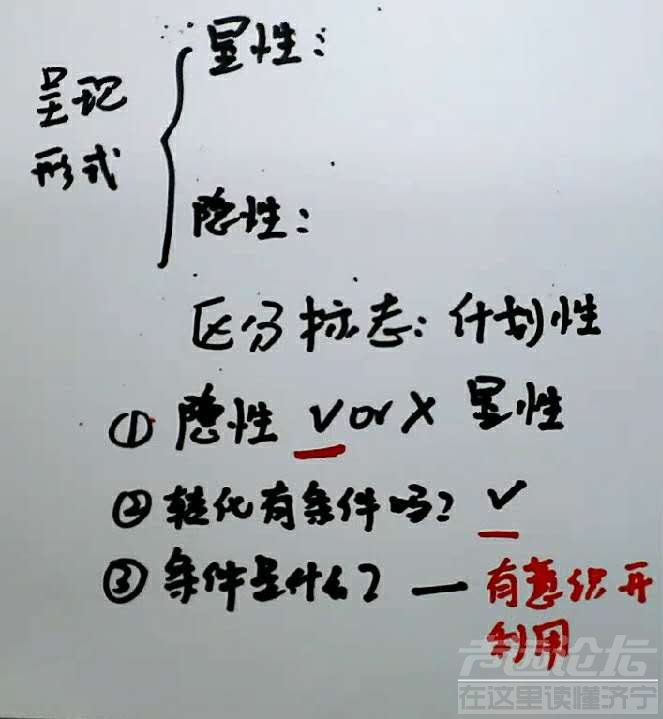 显性：
呈现
形式
隐性：
区分标志：计划性
① 隐性 √ or × 显性
② 转化有条件吗？ √
③ 条件是什么？ — 有意识开
利用
在这里读懂济宁